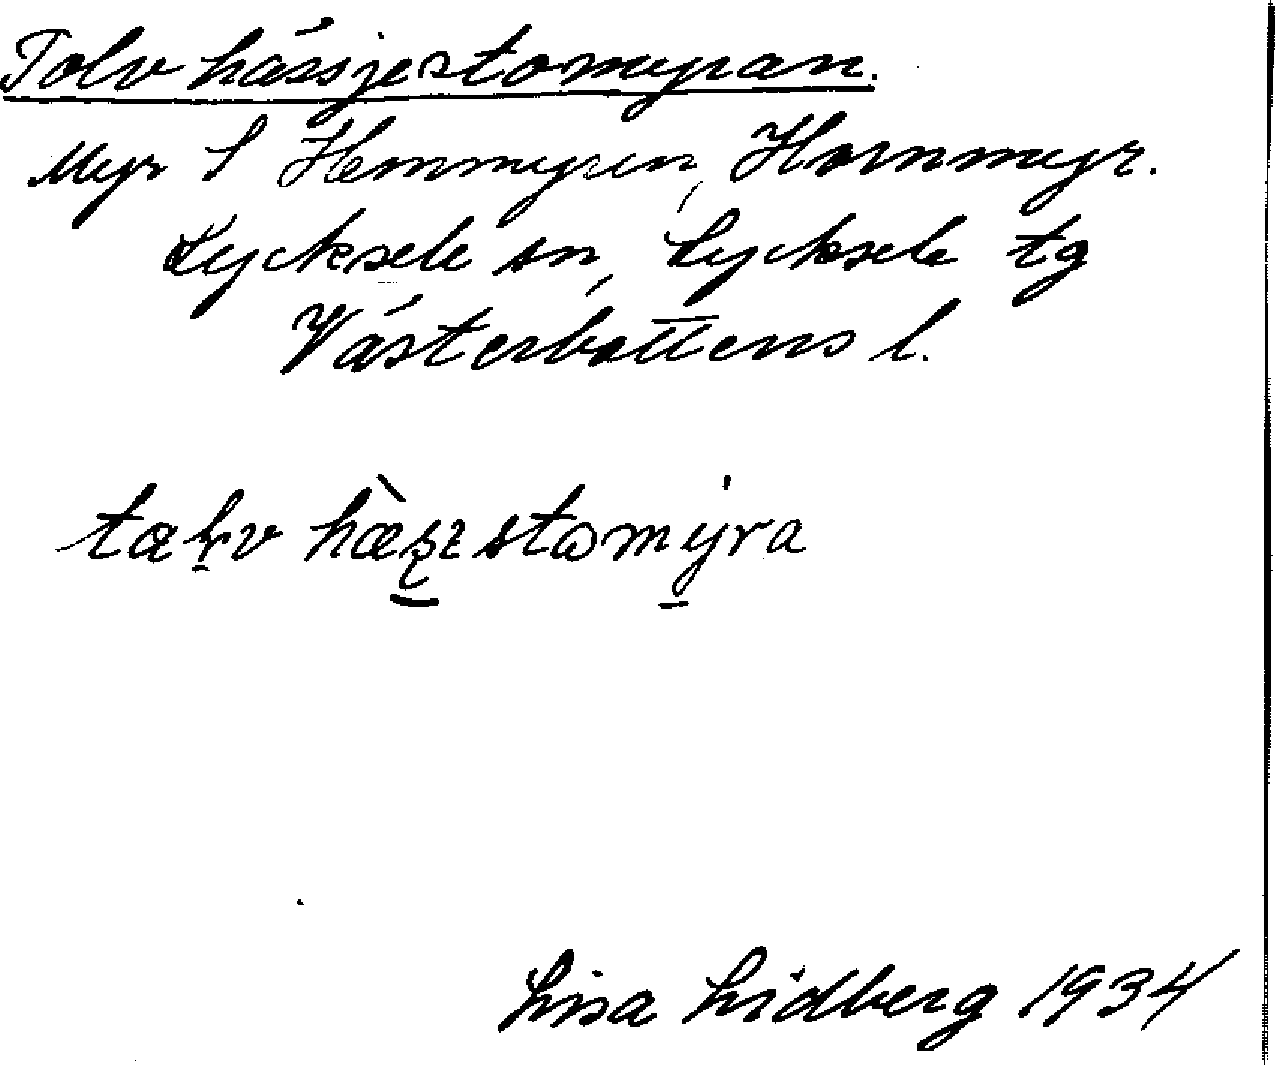 Tolv hässjestomyran.
Myr S Hemmyren, Hornmyr.
Lycksele sn, Lycksele tg
Västerbottens l.
Lisa Lidberg 1934